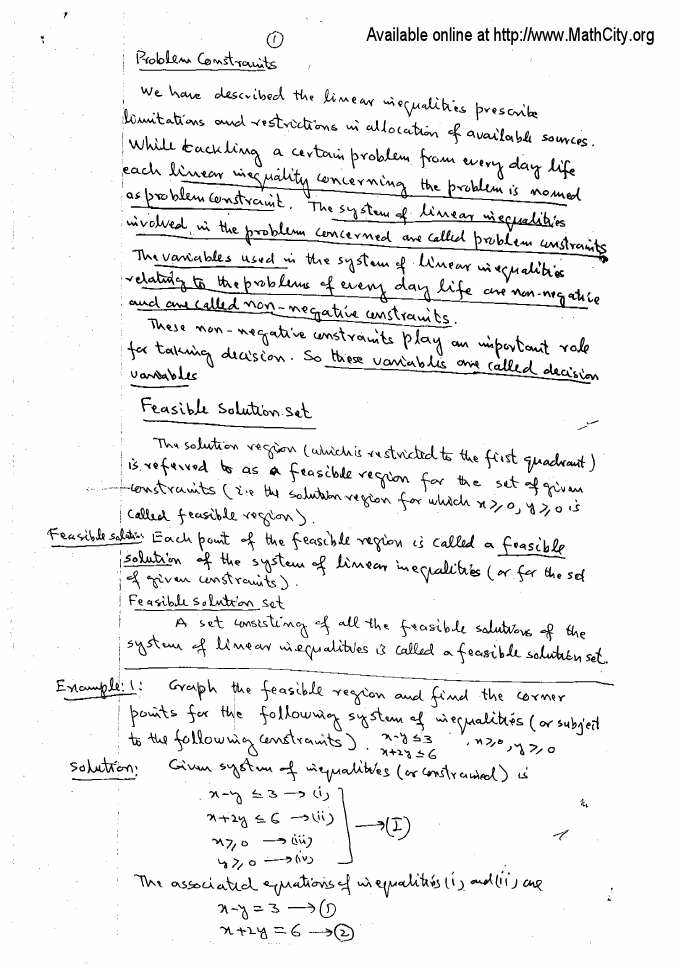 ① Available online at http://www.MathCity.org
Problem Constraints
We have described the linear inequalities prescribe
limitations and restrictions in allocation of available sources.
While tackling a certain problem from every day life
each linear inequality concerning the problem is named
as problem constraint. The system of linear inequalities
involved in the problem concerned are called problem constraints
The variables used in the system of linear inequalities
relating to the problems of every day life are non-negative
and are called non-negative constraints.
These non-negative constraints play an important role
for taking decision. So these variables are called decision
variables
Feasible solution set
The solution region (which is restricted to the first quadrant)
is referred to as a feasible region for the set of given
constraints (i.e the solution region for which x ≥ 0, y ≥ 0 is
called feasible region).
Feasible solution: Each point of the feasible region is called a feasible
solution of the system of linear inequalities (or for the set
of given constraints).
Feasible solution set
A set consisting of all the feasible solutions of the
system of linear inequalities is called a feasible solution set.
Example:1: Graph the feasible region and find the corner
points for the following system of inequalities (or subject
to the following constraints). x-y ≤ 3 , x ≥ 0, y ≥ 0
x+2y ≤ 6
Solution: Given system of inequalities (or constrained) is
x-y ≤ 3 → (i)
x+2y ≤ 6 → (ii)
→ (I)
x ≥ 0 → (iii)
y ≥ 0 → (iv)
The associated equations of inequalities (i) and (ii) are
x-y = 3 → ①
x+2y = 6 → ②